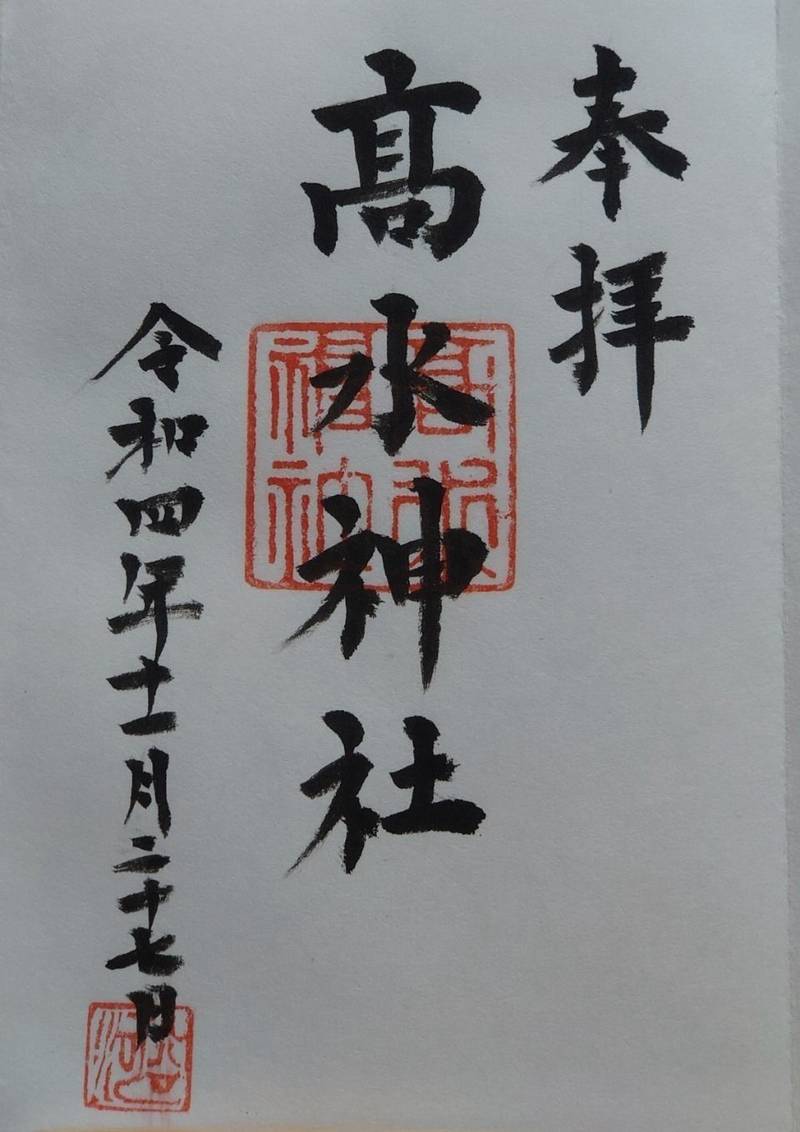 奉拝
髙水神社
令和四年十一月二十七日